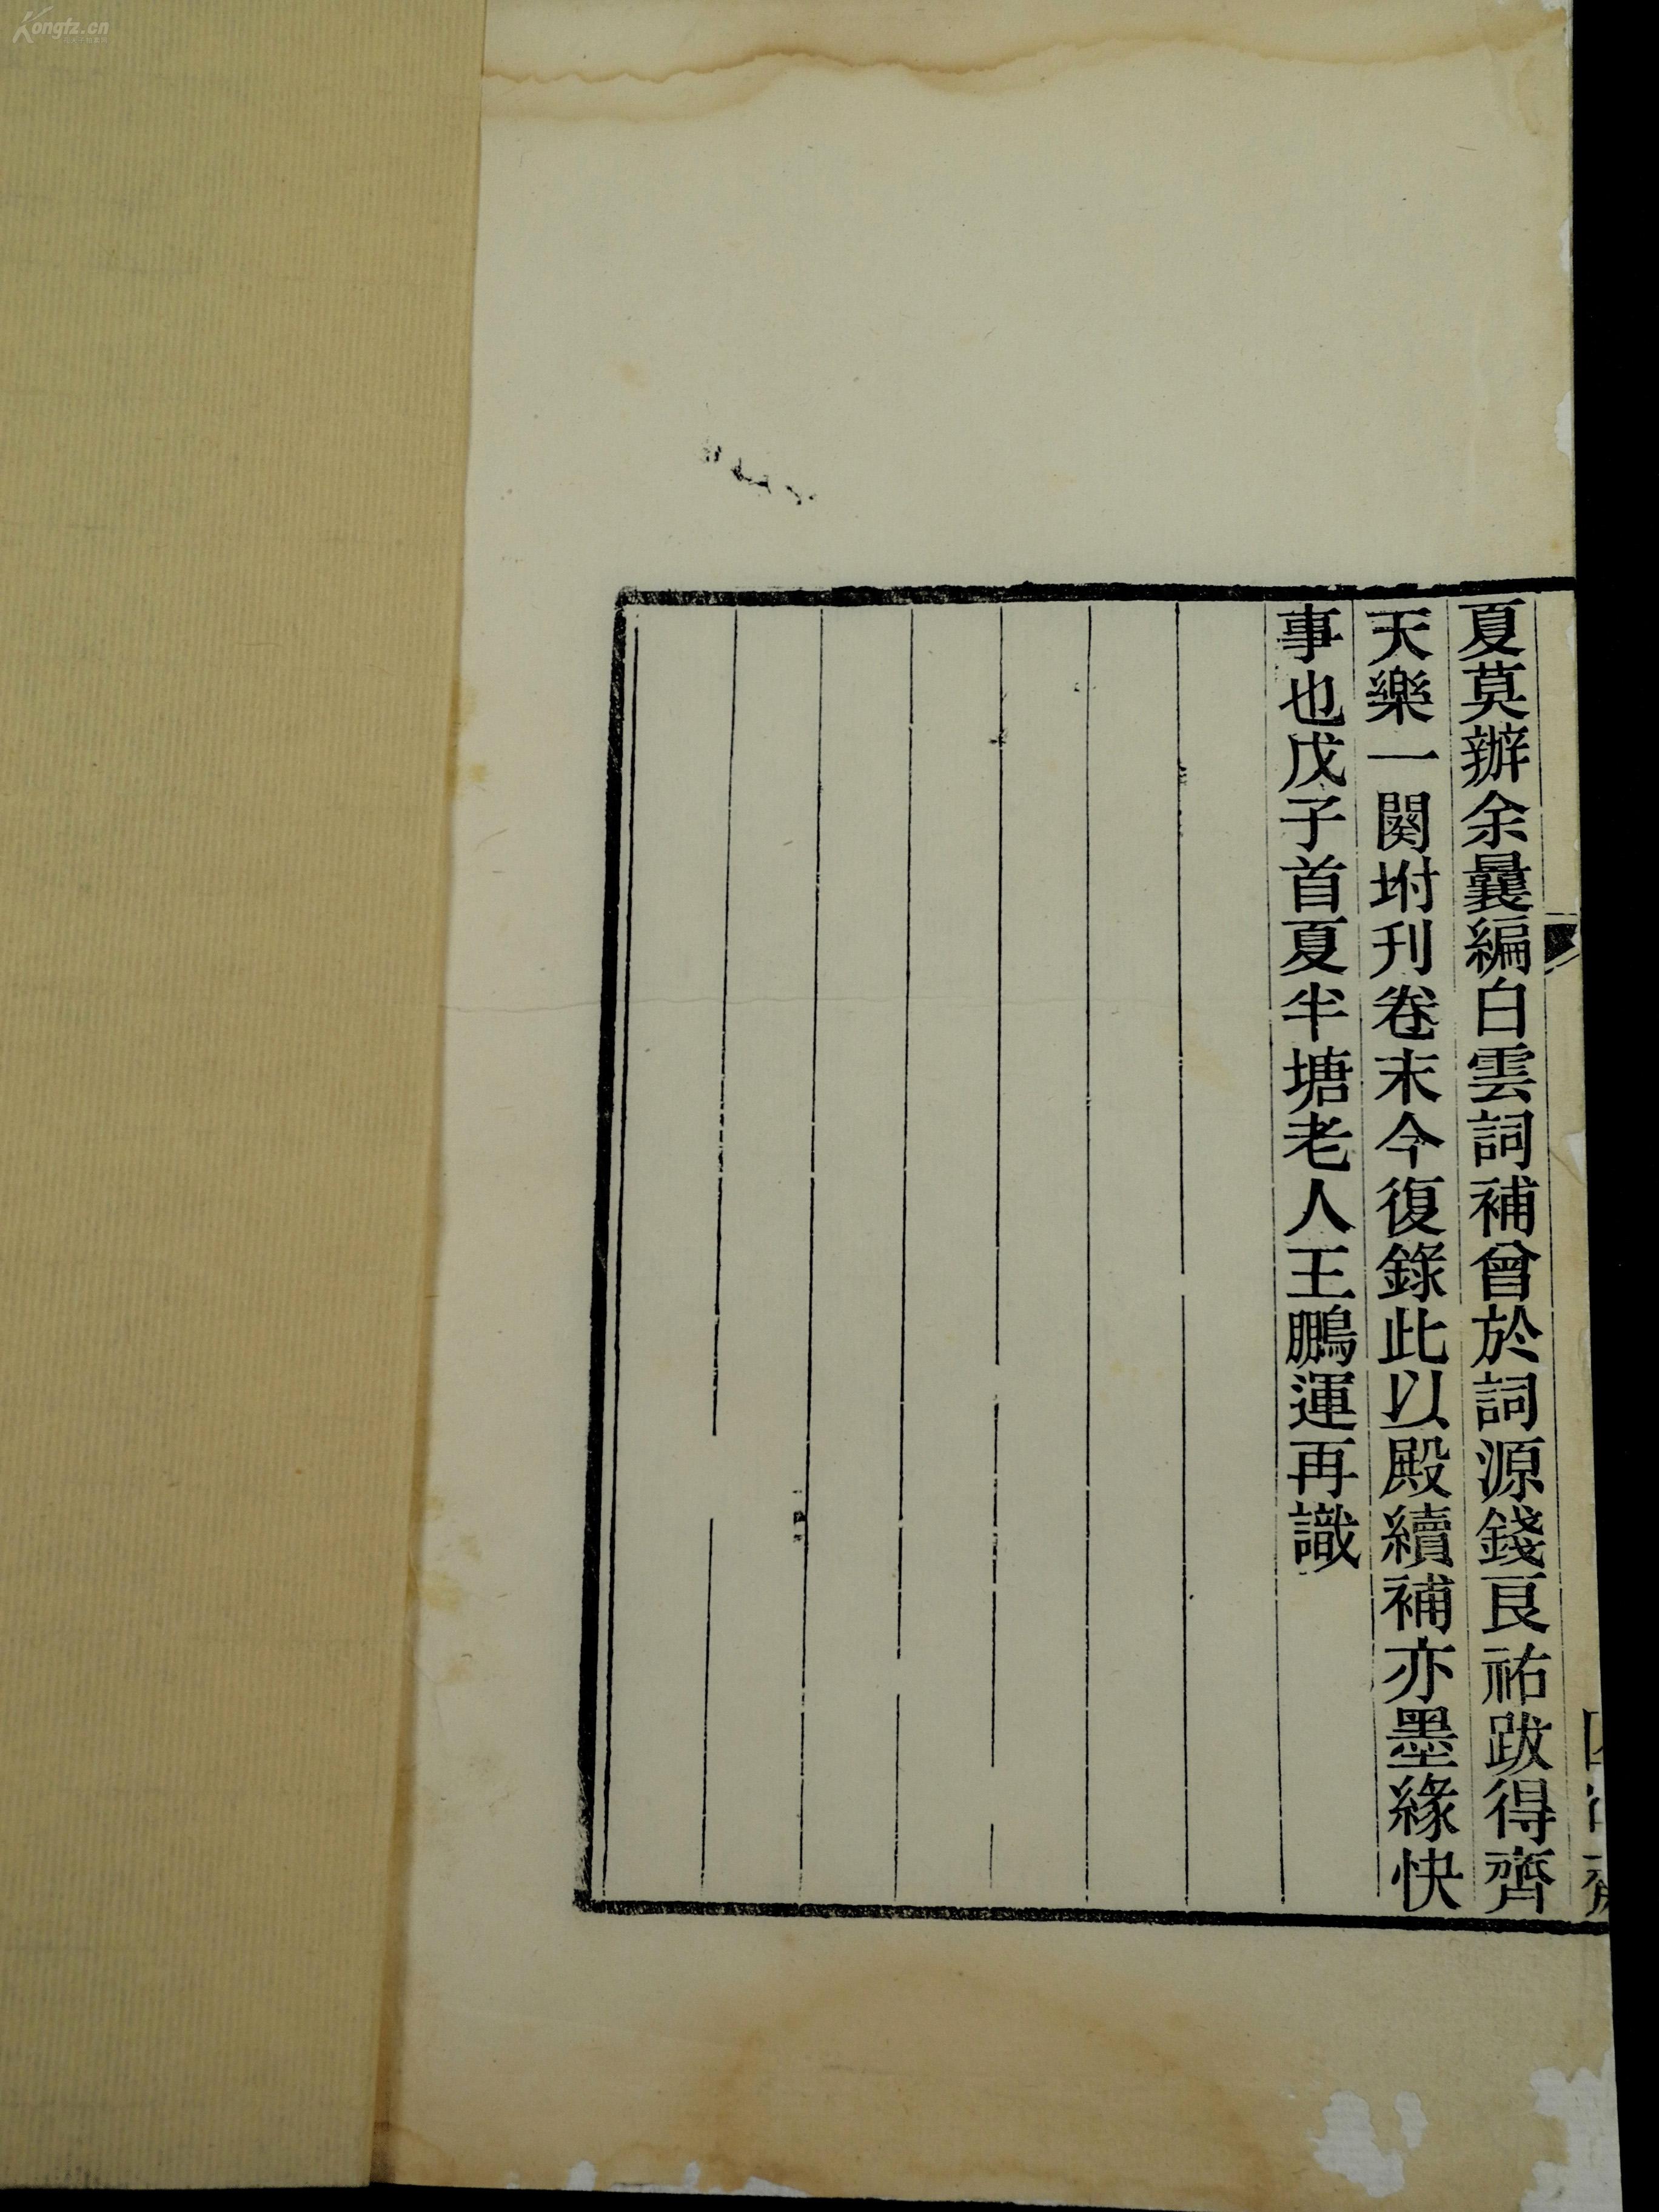 夏莫辦余曩編白雲詞補曾於詞源錢良祐跋得齊
天樂一闋坿刊卷末今復錄此以殿續補亦墨緣快
事也戊子首夏半塘老人王鵬運再識
Kongfz.cn